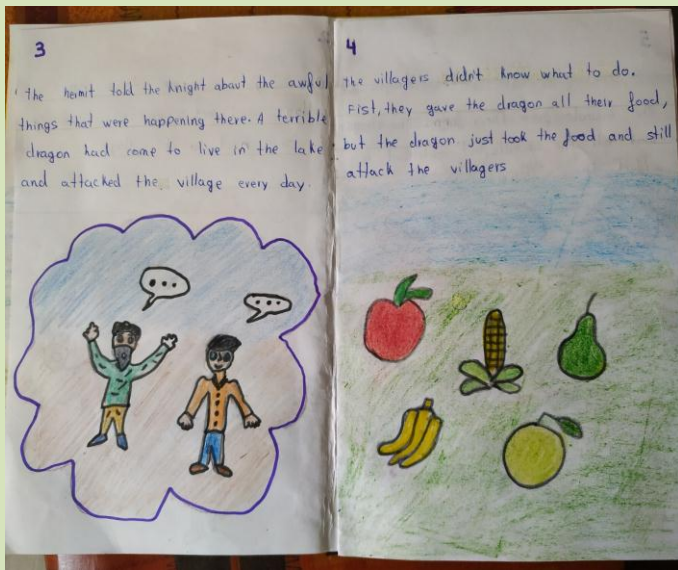 3
The hermit told the knight about the awful
things that were happening there. A terrible
dragon had come to live in the lake
and attacked the village every day.
4
The villagers didn't know what to do.
Fist, they gave the dragon all their food,
but the dragon just took the food and still
attack the villagers